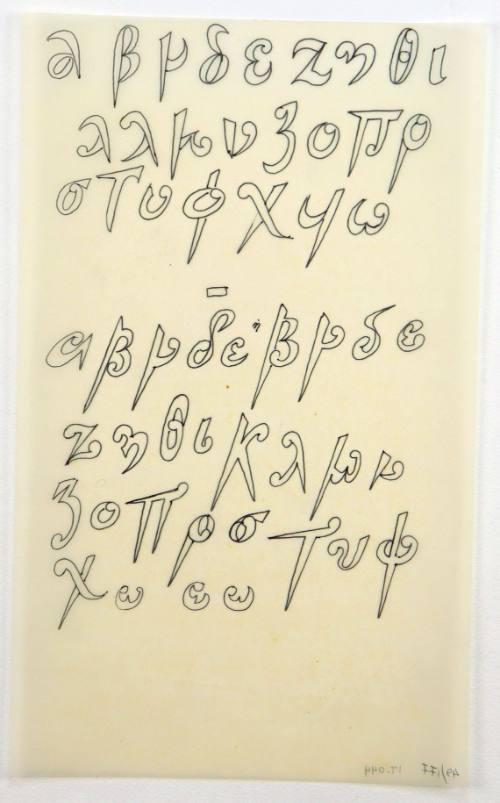 α β γ δ ε ζ η θ ι
λ λ μ ν ξ ο π ρ
σ τ υ φ χ ψ ω
α β γ δ ε β γ δ ε
ζ η θ ι κ λ μ ν
ξ ο π ρ σ τ υ φ
χ ω ω ω